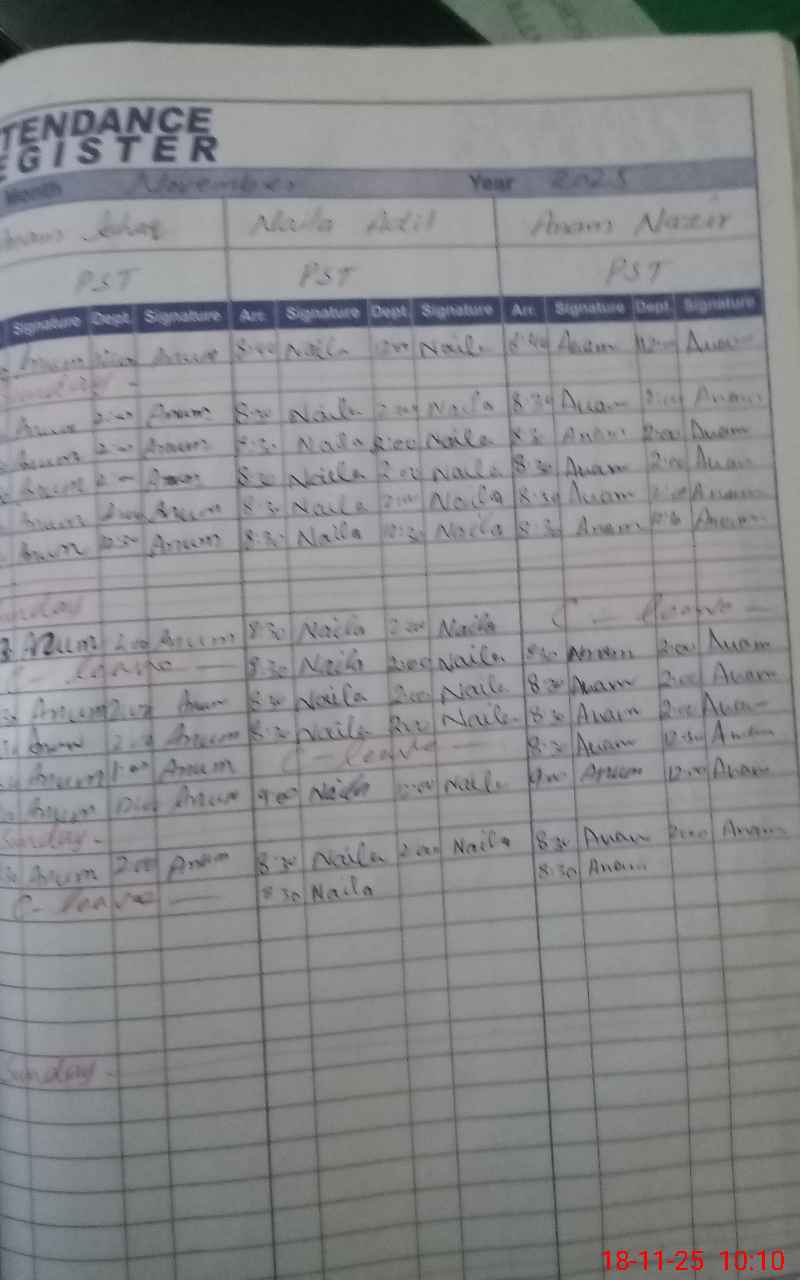 TENDANCE
EGISTER
Month November Year 2025
Naila Adil Anam Nazir
PST PST PST
Signature Dept. Signature Arr. Signature Dept. Signature Arr. Signature Dept. Signature
Anum Anum 8:40 Naila 12:00 Naila 8:40 Anam 12:00 Anam
Sunday -
Anum 2:00 Anum 8:30 Naila 2:00 Naila 8:30 Anam 2:00 Anam
Anum 2:00 Anum 8:30 Naila 2:00 Naila 8:30 Anam 2:00 Anam
Anum Anum 8:30 Naila 2:00 Naila 8:30 Anam 2:00 Anam
Anum 2:00 Anum 8:30 Naila 2:00 Naila 8:30 Anam 2:00 Anam
Anum 12:30 Anum 8:30 Naila 12:30 Naila 8:30 Anam Anam
Sunday
Anum 2:00 Anum 8:30 Naila 2:00 Naila C - leave -
C - leave - 8:30 Naila 2:00 Naila 8:30 Anam 2:00 Anam
Anum 2:00 Anum 8:30 Naila 2:00 Naila 8:30 Anam 2:00 Anam
Anum 2:00 Anum 8:30 Naila 2:00 Naila 8:30 Anam 2:00 Anam
Anum Anum C - leave - 8:30 Anam 12:30 Anam
Anum Anum 9:00 Naila 12:00 Naila 9:00 Anam 12:00 Anam
Sunday -
Anum 2:00 Anum 8:30 Naila 2:00 Naila 8:30 Anam 2:00 Anam
C - leave - 8:30 Naila 8:30 Anam
Sunday -
18-11-25 10:10